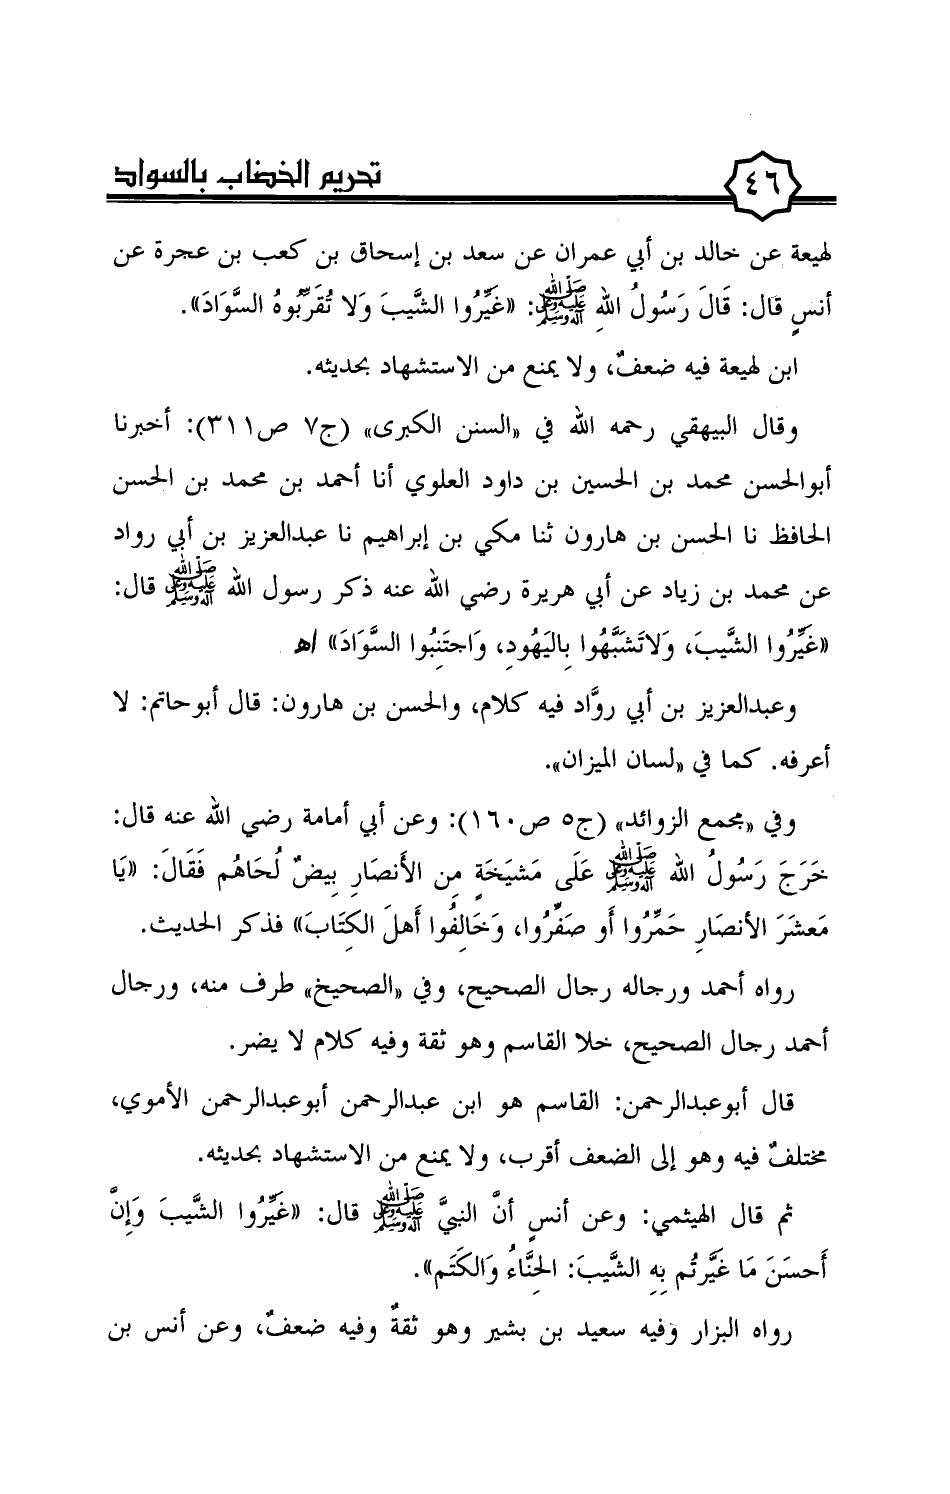 ٤٦
تحريم الخضاب بالسواد
لهيعة عن خالد بن أبي عمران عن سعد بن إسحاق بن كعب بن عجرة عن
أنسٍ قال: قَالَ رَسُولُ اللهِ ﷺ: «غَيِّرُوا الشَّيبَ وَلا تُقَرِّبُوهُ السَّوَادَ».
ابن لهيعة فيه ضعفٌ، ولا يمنع من الاستشهاد بحديثه.
وقال البيهقي رحمه الله في «السنن الكبرى» (ج٧ ص٣١١): أخبرنا
أبوالحسن محمد بن الحسين بن داود العلوي أنا أحمد بن محمد بن الحسن
الحافظ نا الحسن بن هارون ثنا مكي بن إبراهيم نا عبدالعزيز بن أبي رواد
عن محمد بن زياد عن أبي هريرة رضي الله عنه ذكر رسول الله ﷺ قال:
«غَيِّرُوا الشَّيبَ، وَلاتَشَبَّهُوا بِاليَهُودِ، وَاجتَنِبُوا السَّوَادَ» اﻫ
وعبدالعزيز بن أبي روَّاد فيه كلام، والحسن بن هارون: قال أبوحاتم: لا
أعرفه. كما في «لسان الميزان».
وفي «مجمع الزوائد» (ج٥ ص١٦٠): وعن أبي أمامة رضي الله عنه قال:
خَرَجَ رَسُولُ الله ﷺ عَلَى مَشيَخَةٍ مِن الأَنصَارِ بِيضٌ لُحَاهُم فَقَالَ: «يَا
مَعشَرَ الأنصَارِ حَمِّرُوا أَو صَفِّرُوا، وَخَالِفُوا أَهلَ الكِتَابَ» فذكر الحديث.
رواه أحمد ورجاله رجال الصحيح، وفي «الصحيخ» طرف منه، ورجال
أحمد رجال الصحيح، خلا القاسم وهو ثقة وفيه كلام لا يضر.
قال أبوعبدالرحمن: القاسم هو ابن عبدالرحمن أبوعبدالرحمن الأموي،
مختلفٌ فيه وهو إلى الضعف أقرب، ولا يمنع من الاستشهاد بحديثه.
ثم قال الهيثمي: وعن أنسٍ أنَّ النبيَّ ﷺ قال: «غَيِّرُوا الشَّيبَ وَإِنَّ
أَحسَنَ مَا غَيَّرتُم بِهِ الشَّيبَ: الحِنَّاءُ وَالكَتَم».
رواه البزار وفيه سعيد بن بشير وهو ثقةٌ وفيه ضعفٌ، وعن أنس بن